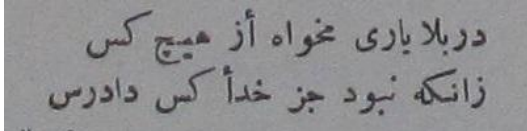 در بلا یاری مخواه أز هیچ کس
زانکه نبود جز خدأ کس دادرس